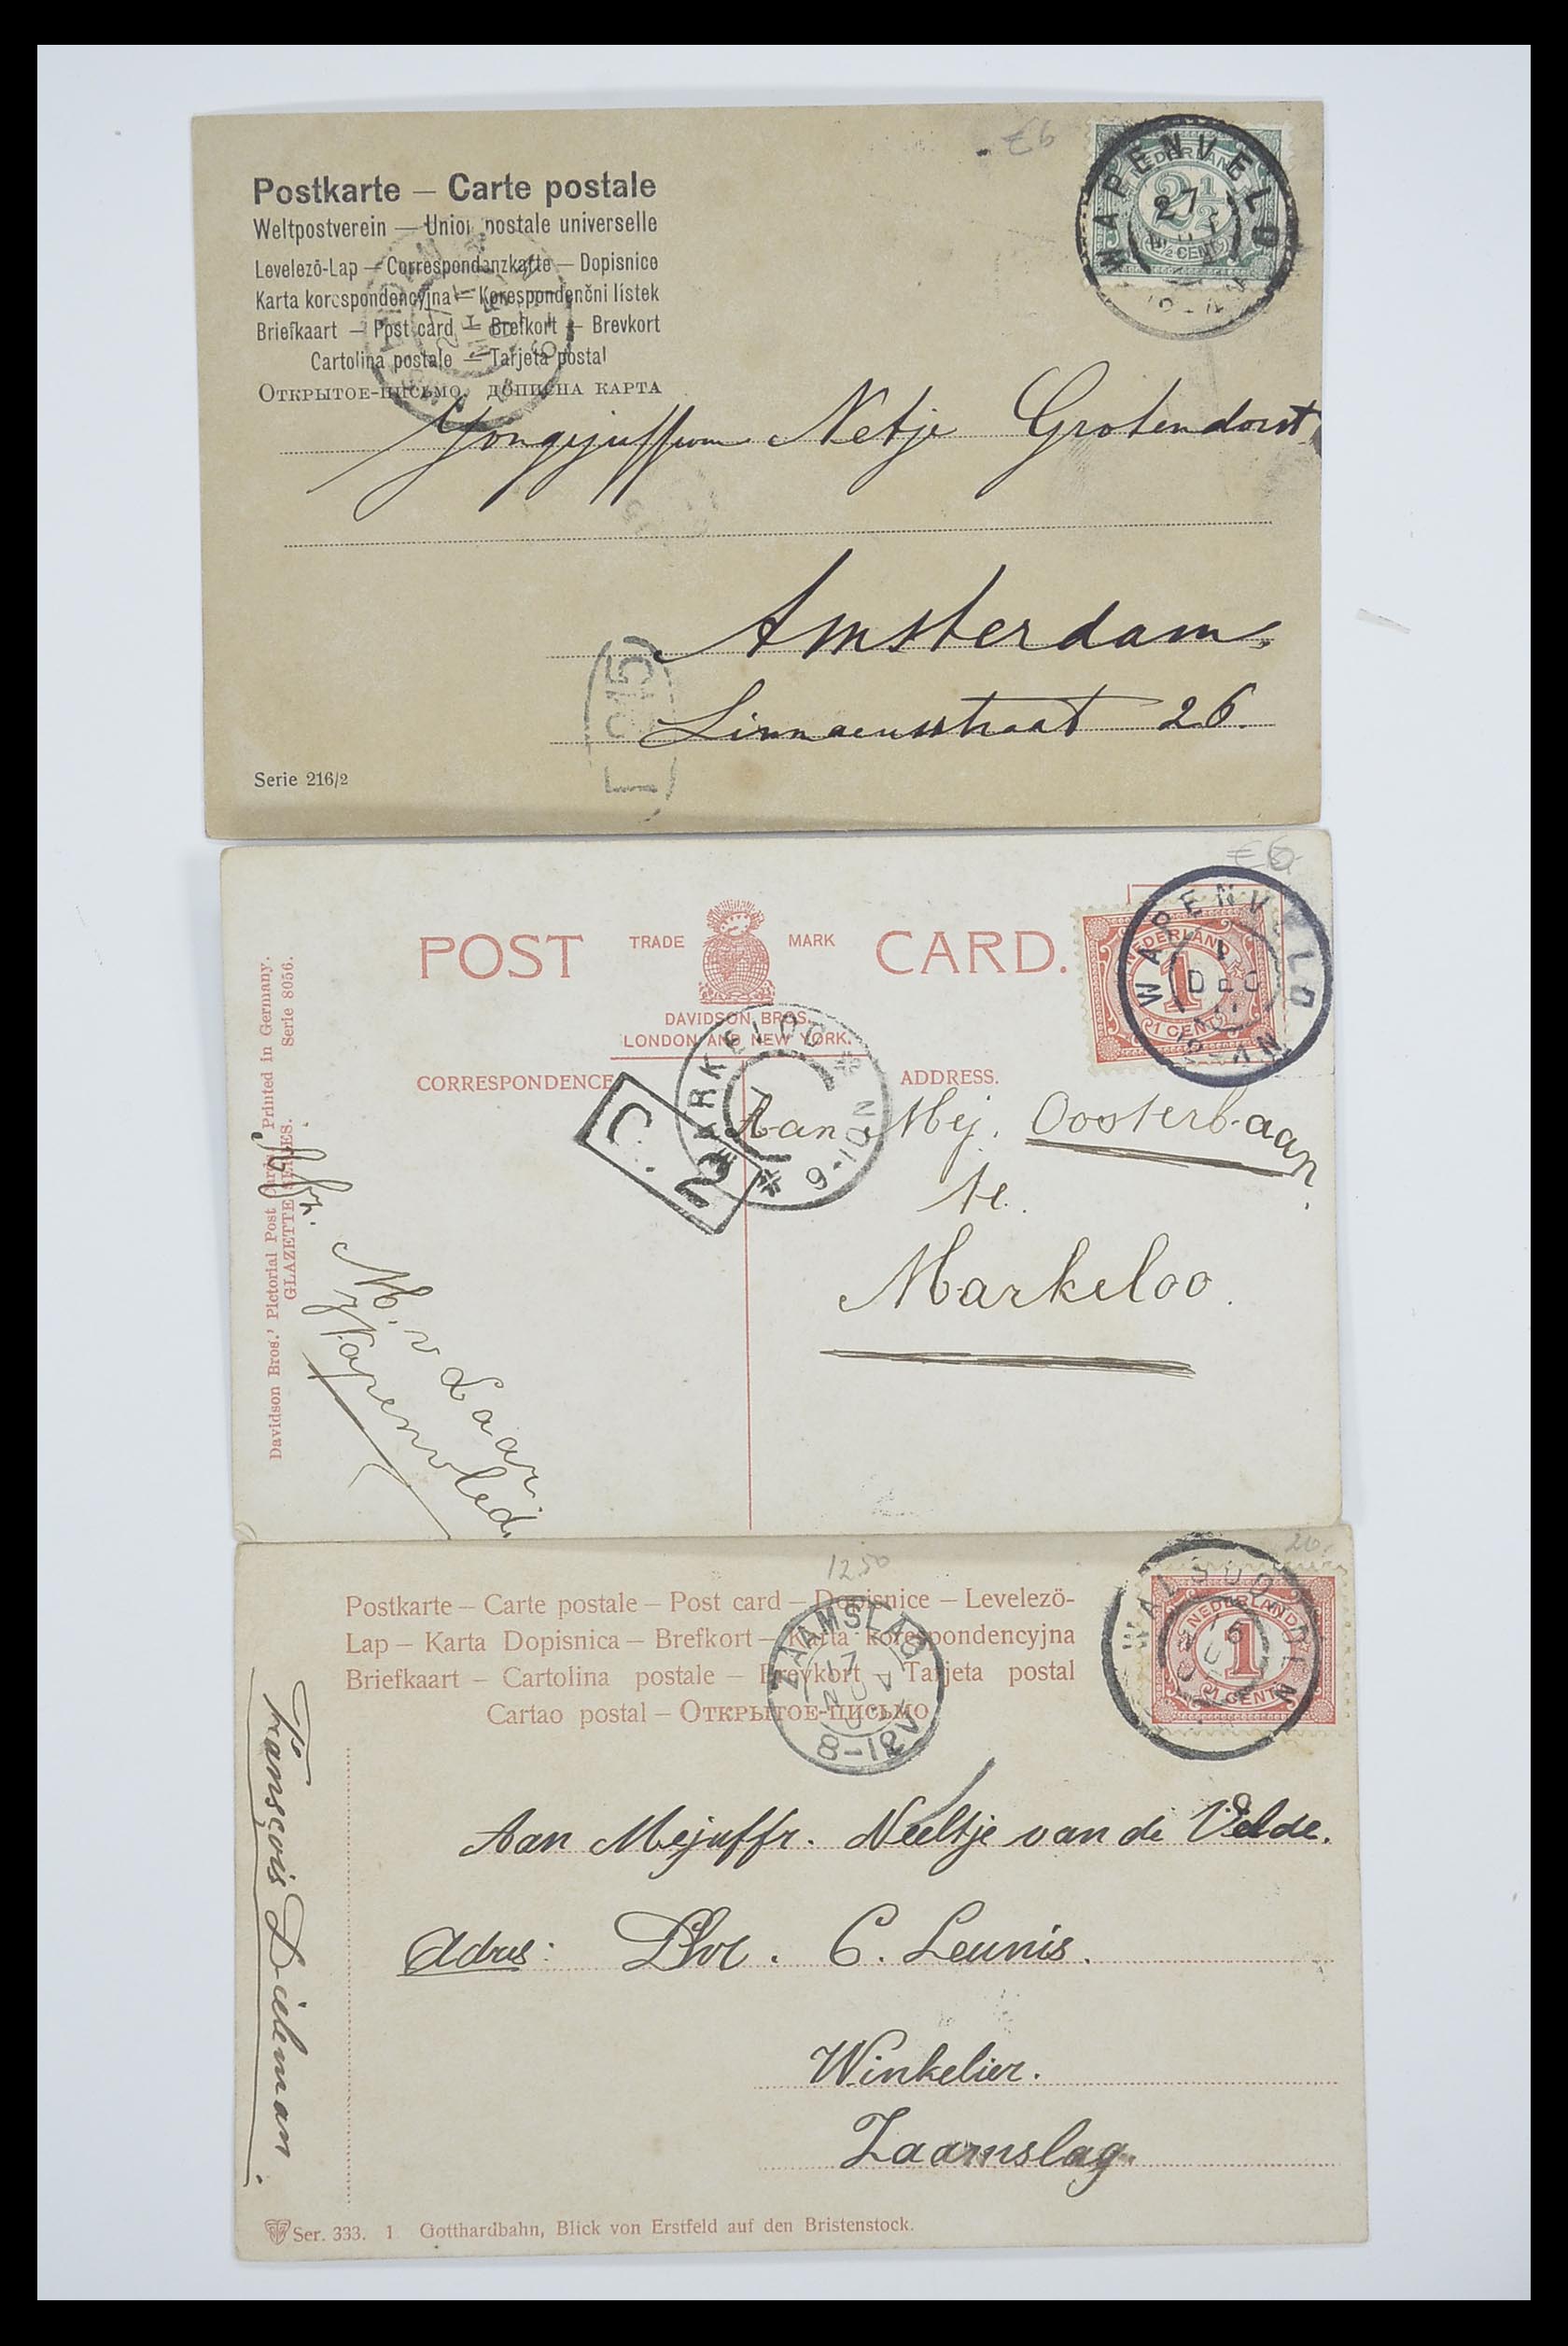 €6
Postkarte — Carte postale
Weltpostverein — Union postale universelle
Levelező-Lap — Correspondanzkarte — Dopisnice
Karta korespondencyjna — Korespondenční lístek
Briefkaart — Post card — Brefkort — Brevkort
Cartolina postale — Tarjeta postal
Открытое-письмо, дописна карта
WAPENVELD
27
NEDERLAND
2½
2½ CENT
Jongejuffrouw Netje Grotendorst
Amsterdam.
Linnaeusstraat 26.
Serie 216/2
€6
POST CARD.
TRADE MARK
DAVIDSON BROS.
LONDON AND NEW YORK.
CORRESPONDENCE
ADDRESS.
WAPENVELD
1
DEC
NEDERLAND
1
1 CENT
MARKELOO
9-10N
Davidson Bros.' Pictorial Post Cards. Printed in Germany.
GLAZETTE SERIES. Serie 8056.
Aan Mej. Oosterbaan
te.
Markeloo.
Afz.
M. v Laar.
Wapenveld.
20.
1250
Postkarte — Carte postale — Post card — Dopisnice — Levelező-
Lap — Karta Dopisnica — Brefkort — Karta korespondencyjna
Briefkaart — Cartolina postale — Brevkort — Tarjeta postal
Cartao postal — Открытое-письмо
ZAAMSLAG
17
NOV
8-12V
WALSOORDEN
NEDERLAND
1
1 CENT
Aan Mejuffr. Neeltje van de Velde.
Adres: C. Leunis.
Winkelier.
Zaamslag.
François Dieleman.
Ser. 333. 1 Gotthardbahn, Blick von Erstfeld auf den Bristenstock.